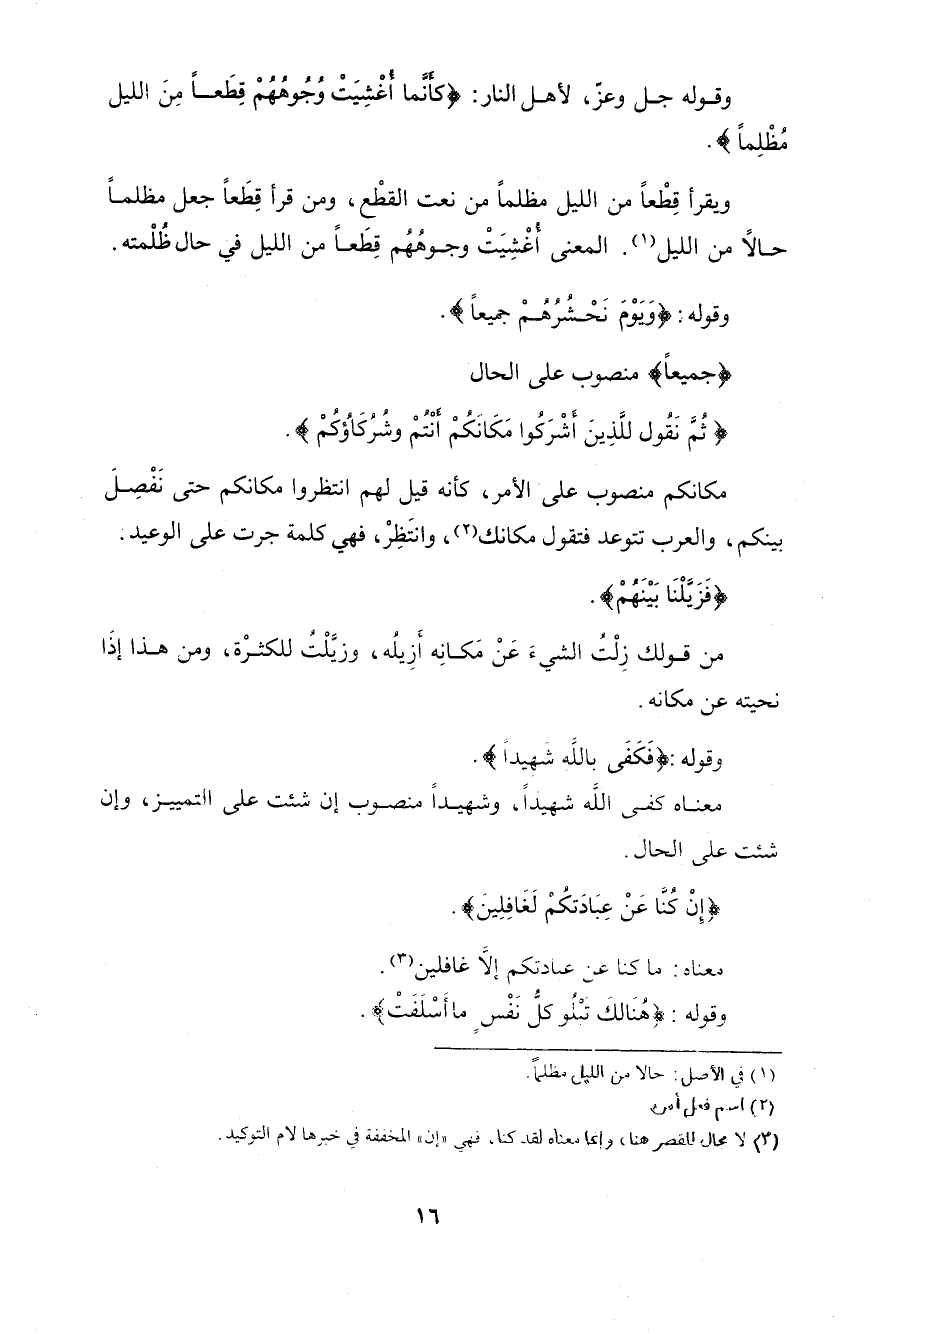 وقوله جل وعزّ، لأهل النار: ﴿كأَنَّما أُغْشِيَتْ وُجُوهُهُمْ قِطَعاً مِنَ الليل
مُظْلِماً﴾.
ويقرأ قِطْعاً من الليل مظلماً من نعت القطْع، ومن قرأ قِطَعاً جعل مظلماً
حالاً من الليل(١). المعنى أُغْشِيَتْ وجوهُهُم قِطَعاً من الليل في حال ظُلْمته.
وقوله: ﴿وَيَوْمَ نَحْشُرُهُمْ جميعاً﴾.
﴿جميعاً﴾ منصوب على الحال
﴿ثُمَّ نَقُول للَّذِينَ أَشْرَكُوا مَكَانَكُمْ أَنْتُمْ وشُرَكَاؤكُمْ﴾.
مكانكم منصوب على الأمر، كأنه قيل لهم انتظروا مكانكم حتى نَفْصِلَ
بينكم، والعرب تتوعد فتقول مكانك(٢)، وانتَظِرْ، فهي كلمة جرت على الوعيد.
﴿فَزَيَّلْنَا بَيْنَهُمْ﴾.
من قولك زِلْتُ الشيءَ عَنْ مَكانِه أَزِيلُه، وزيَّلْتُ للكثرْة، ومن هذا إذَا
نحيته عن مكانه.
وقوله: ﴿فَكَفَى باللَّه شهيداً﴾.
معناه كفى اللَّه شهيداً، وشهيداً منصوب إن شئت على التمييز، وإن
شئت على الحال.
﴿إِنْ كُنَّا عَنْ عِبَادَتكُمْ لَغَافِلِينَ﴾.
معناه: ما كنا عن عبادتكم إلاَّ غافلين(٣).
وقوله: ﴿هُنَالكَ تَبْلُو كلُّ نَفْسٍ ما أَسْلَفَتْ﴾.
(١) في الأصل: حالا من الليل مظلماً.
(٢) اسم فعل أمر.
(٣) لا مجال للقصر هنا، وإنما معناه لقد كنا. فهي «إن» المخففة في خبرها لام التوكيد.
١٦